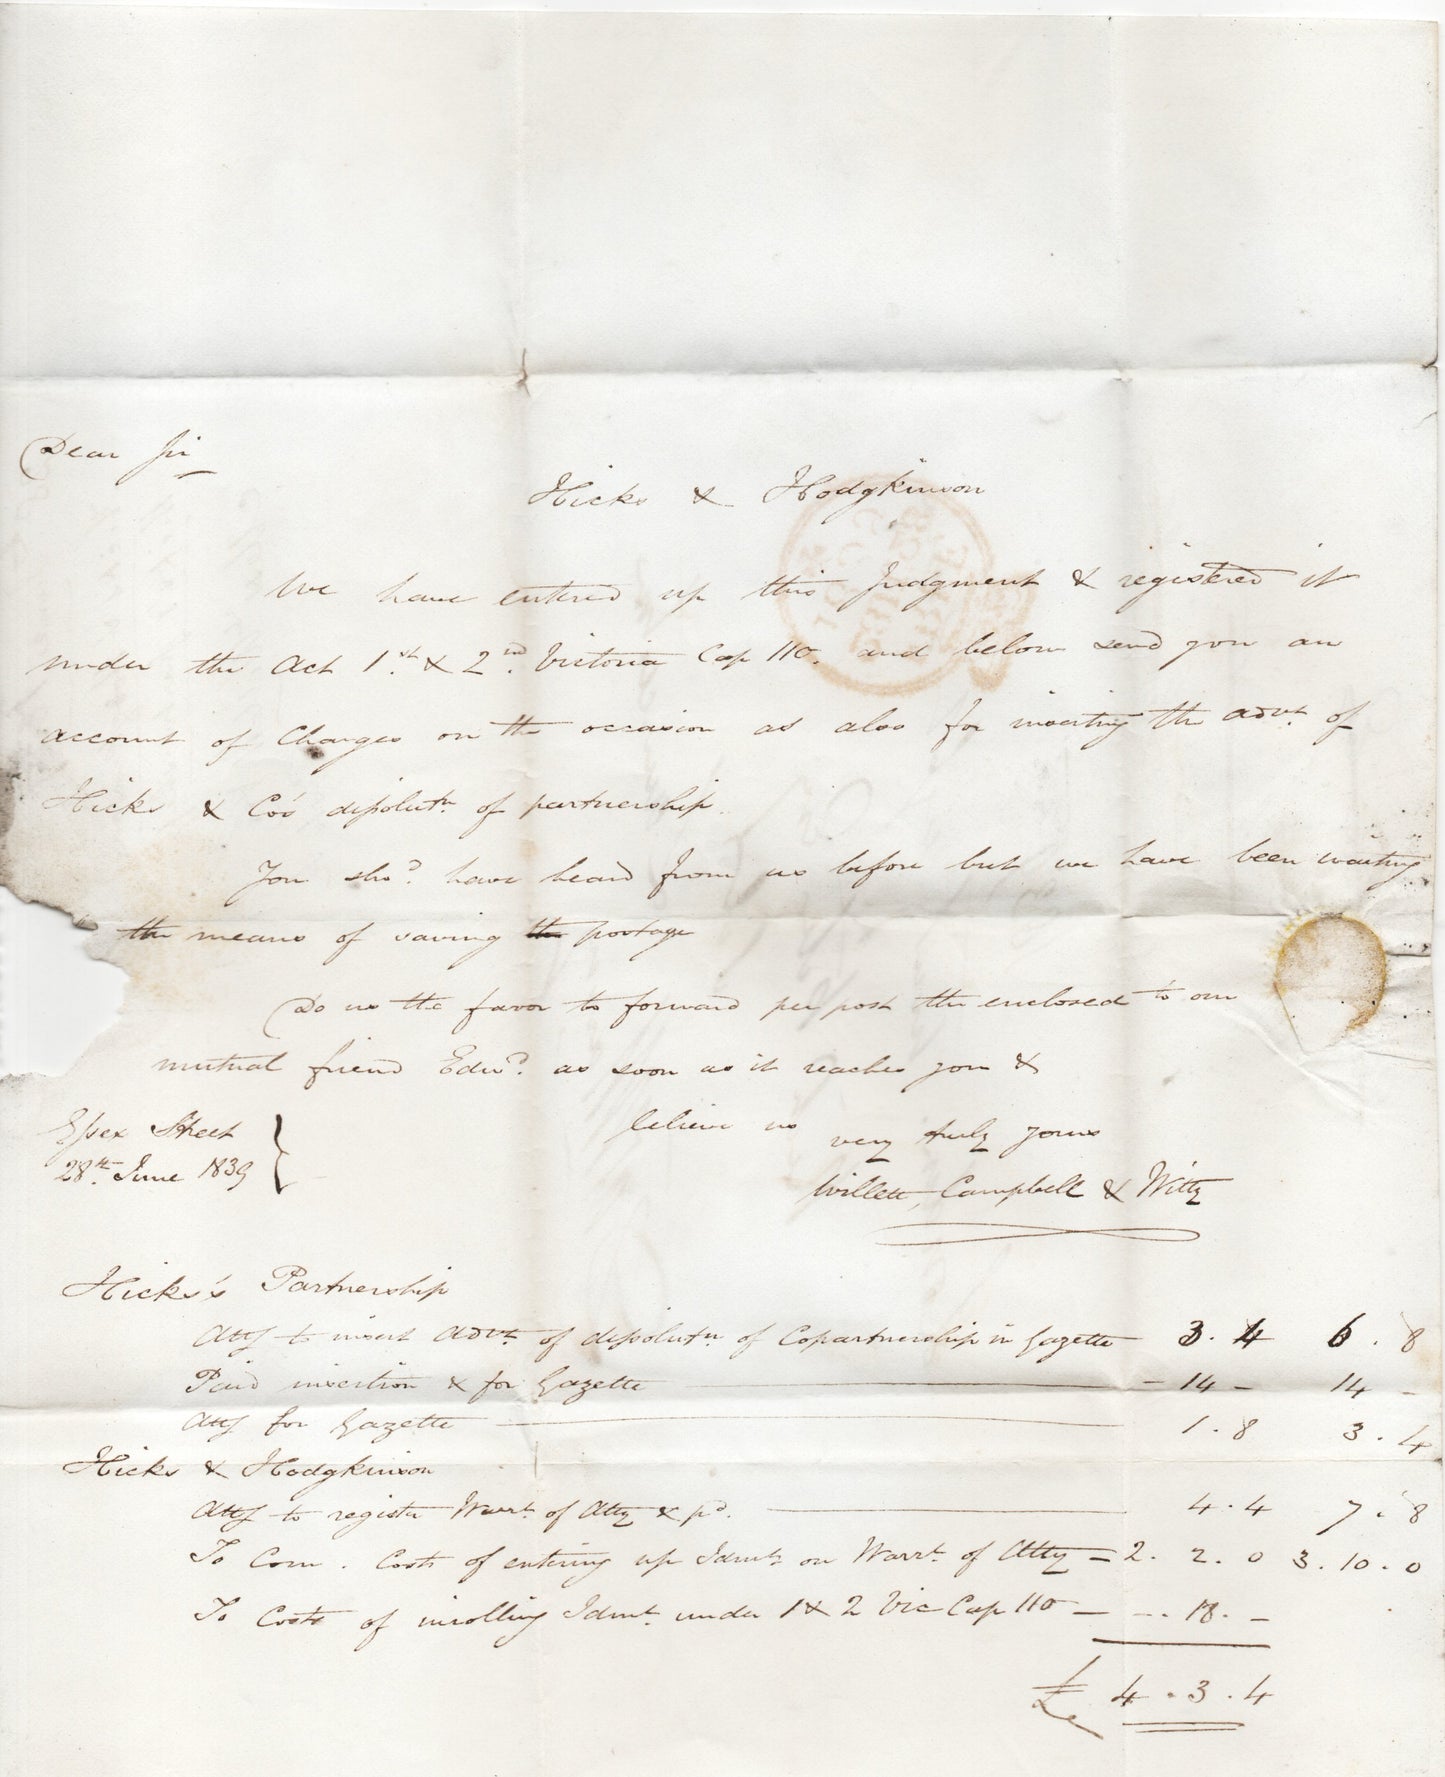 Dear Sir
Hicks & Hodgkinson
We have entered up this Judgment & registered it
under the Act 1st. & 2nd. Victoria Cap 110. and below send you an
account of Charges on the occasion as also for inserting the advt. of
Hicks & Co's dissolutn. of partnership.
You shod. have heard from us before but we have been waiting
the means of saving the postage
Do us the favor to forward per post the enclosed to our
mutual friend Edwd. as soon as it reaches you &
believe us
very truly yours
Willett, Campbell & Witty
Essex Street
28th. June 1839
Hicks's Partnership
Attg to insert Advt. of dissolutn. of Copartnership in Gazette 3.4 6.8
Paid insertion & for Gazette - 14 - 14 -
Attg for Gazette 1.8 3.4
Hicks & Hodgkinson
Attg to register Warrt. of Atty & pd. 4.4 7.8
To Com. Costs of entering up Jdmt. on Warrt. of Atty - 2. 2. 0 3.10.0
To Costs of inrolling Jdmt. under 1 & 2 Vic Cap 110 - -. 18. -
£ 4.3.4